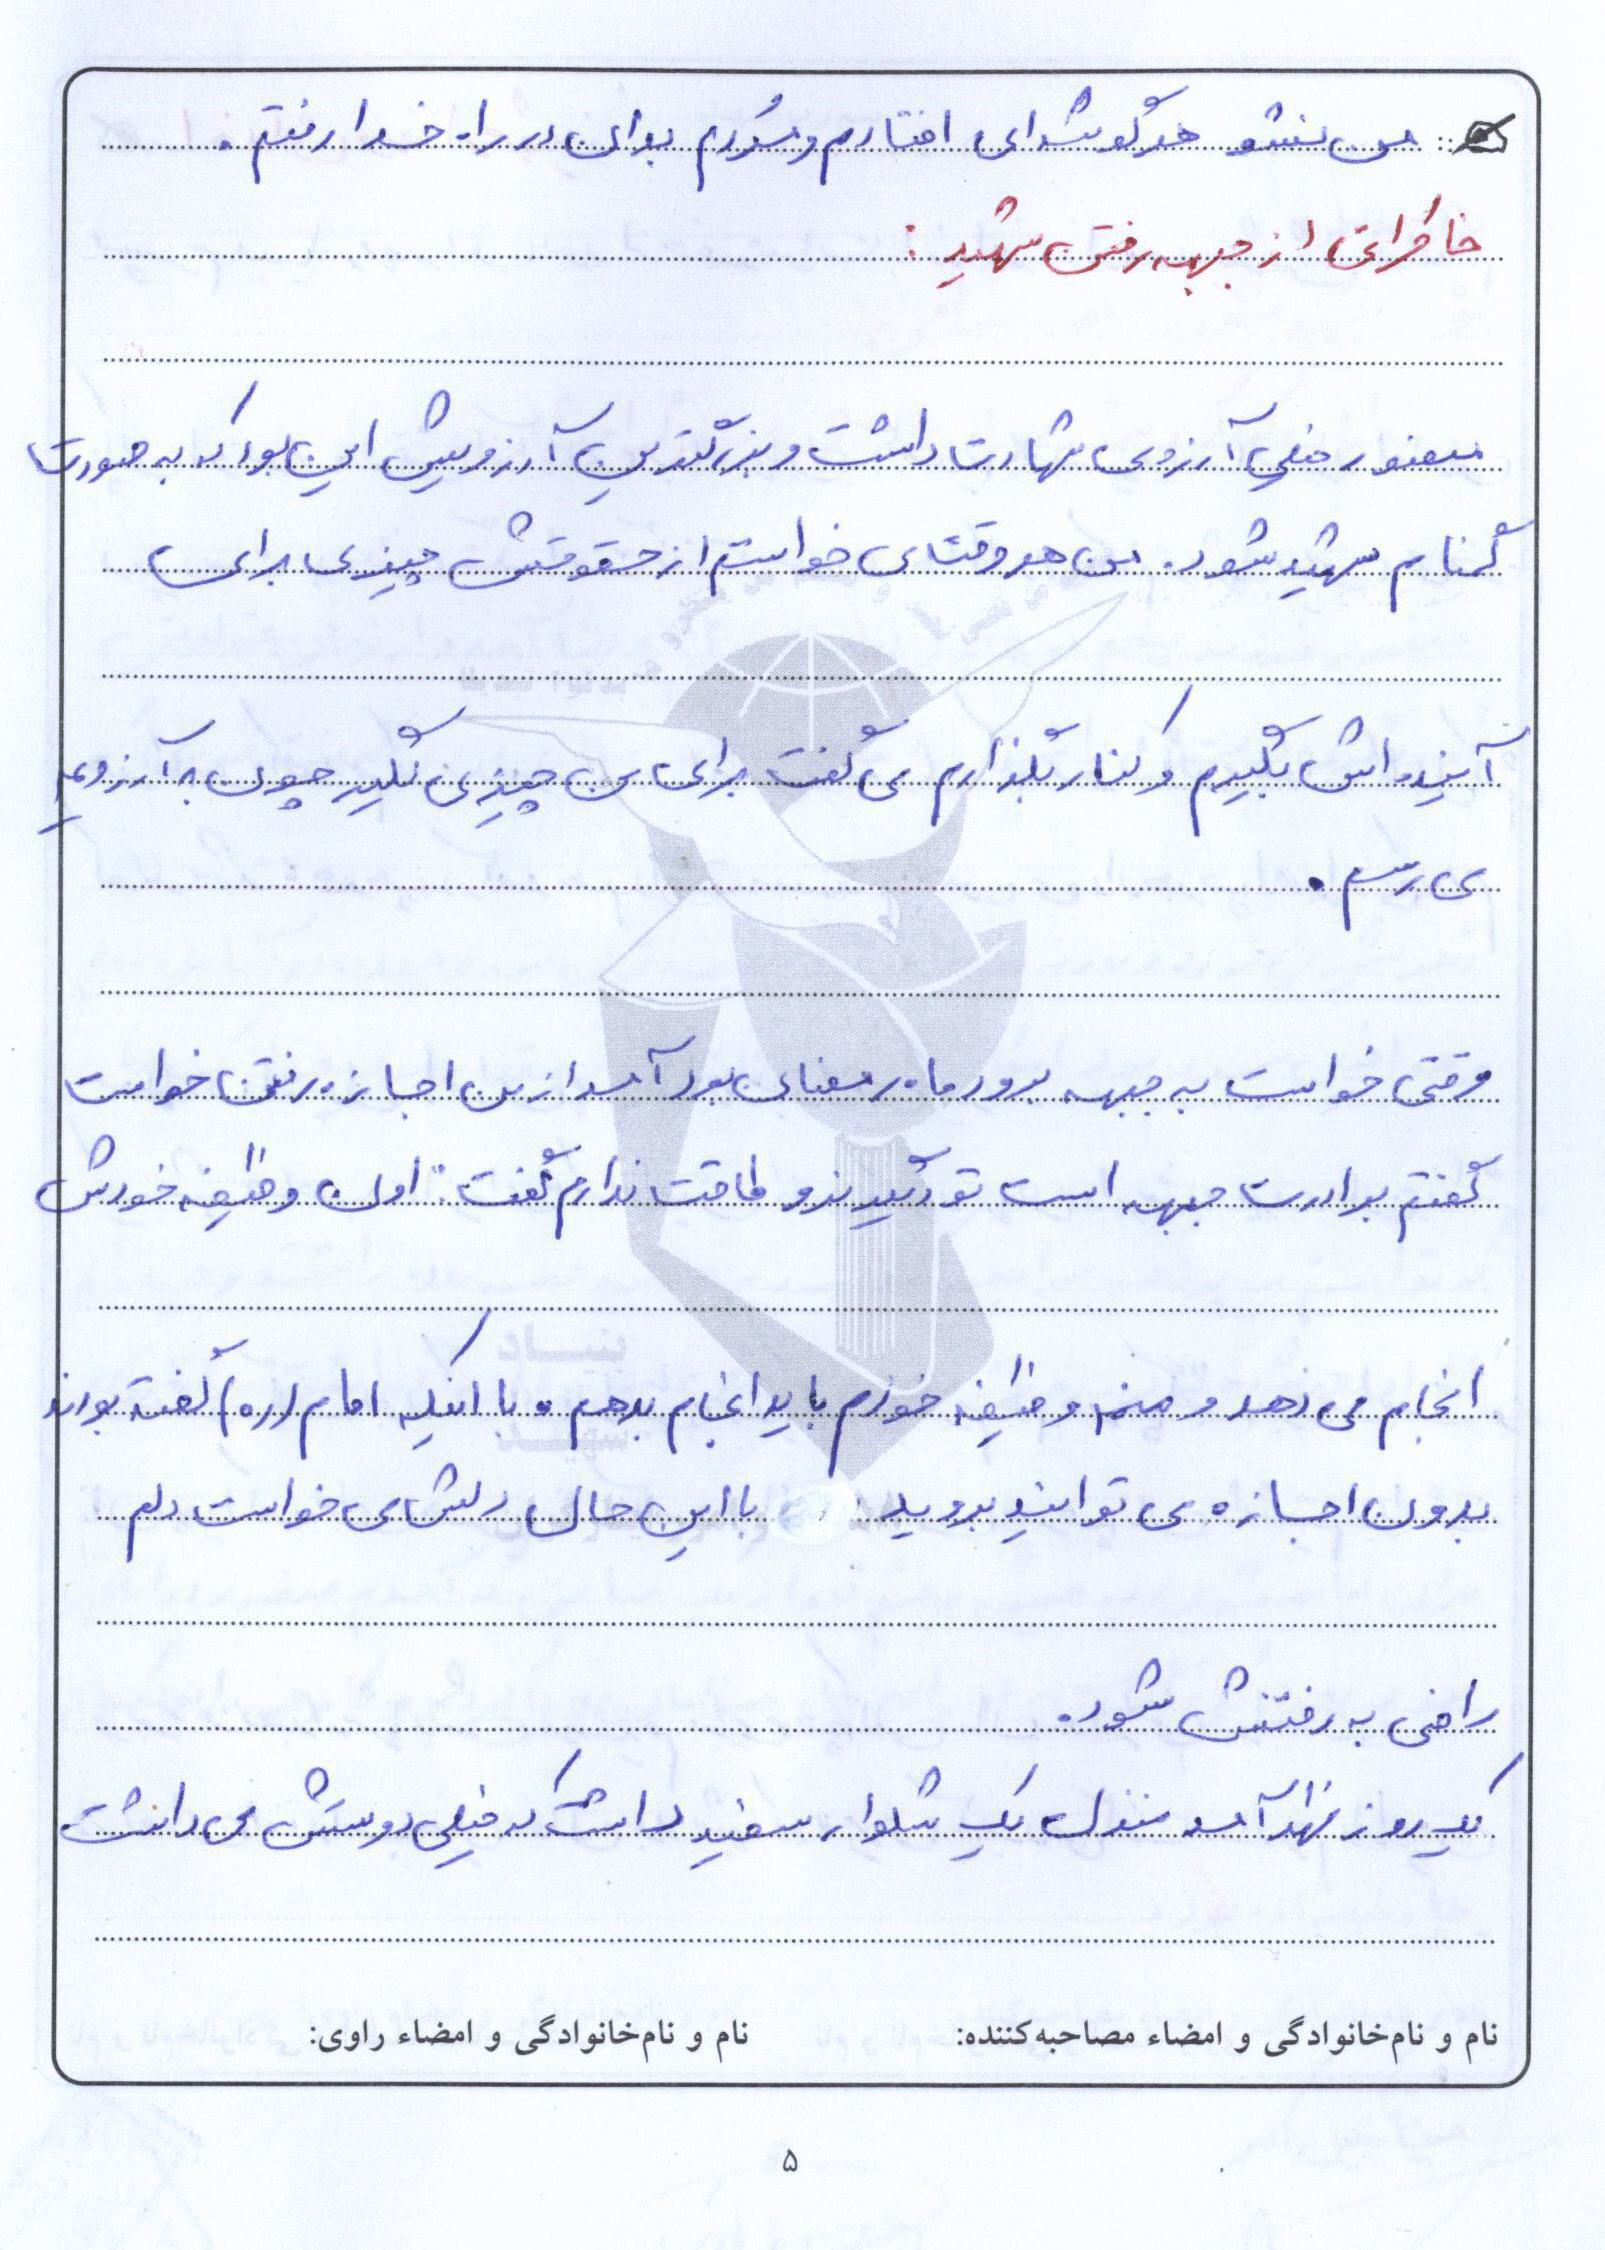 من نشو هر گوشه‌ای افتادم و مُردم بدان در راه خدا رفتم.
خاطراتی از جبهه رفتن شهید:
منصور خیلی آرزوی شهادت داشت و بزرگترین آرزویش این بود که به صورت
گمنام شهید شود. من هر وقت می خواستم از حقوقش چیزی برای
آینده اش بگیرم و کنار بگذارم می گفت برای من چیزی نگیر چون به آرزویم
می رسم.
وقتی خواست به جبهه برود ماه رمضان بود آمد از من اجازه رفتن خواست
گفتم برادرت جبهه است تو دیگر نرو طاقت ندارم گفت: اون وظیفه خودش
انجام می دهد و منم وظیفه خودم باید انجام بدهم. با اینکه امام (ره) گفته بودند
بدون اجازه می توانید بروید با این حال دلش می خواست دلم
راضی به رفتنش شود.
یک روز ظهر آمد منزل یک شلوار سفید داشت که خیلی دوستش می داشت
نام و نام‌خانوادگی و امضاء مصاحبه‌کننده: نام و نام‌خانوادگی و امضاء راوی:
۵